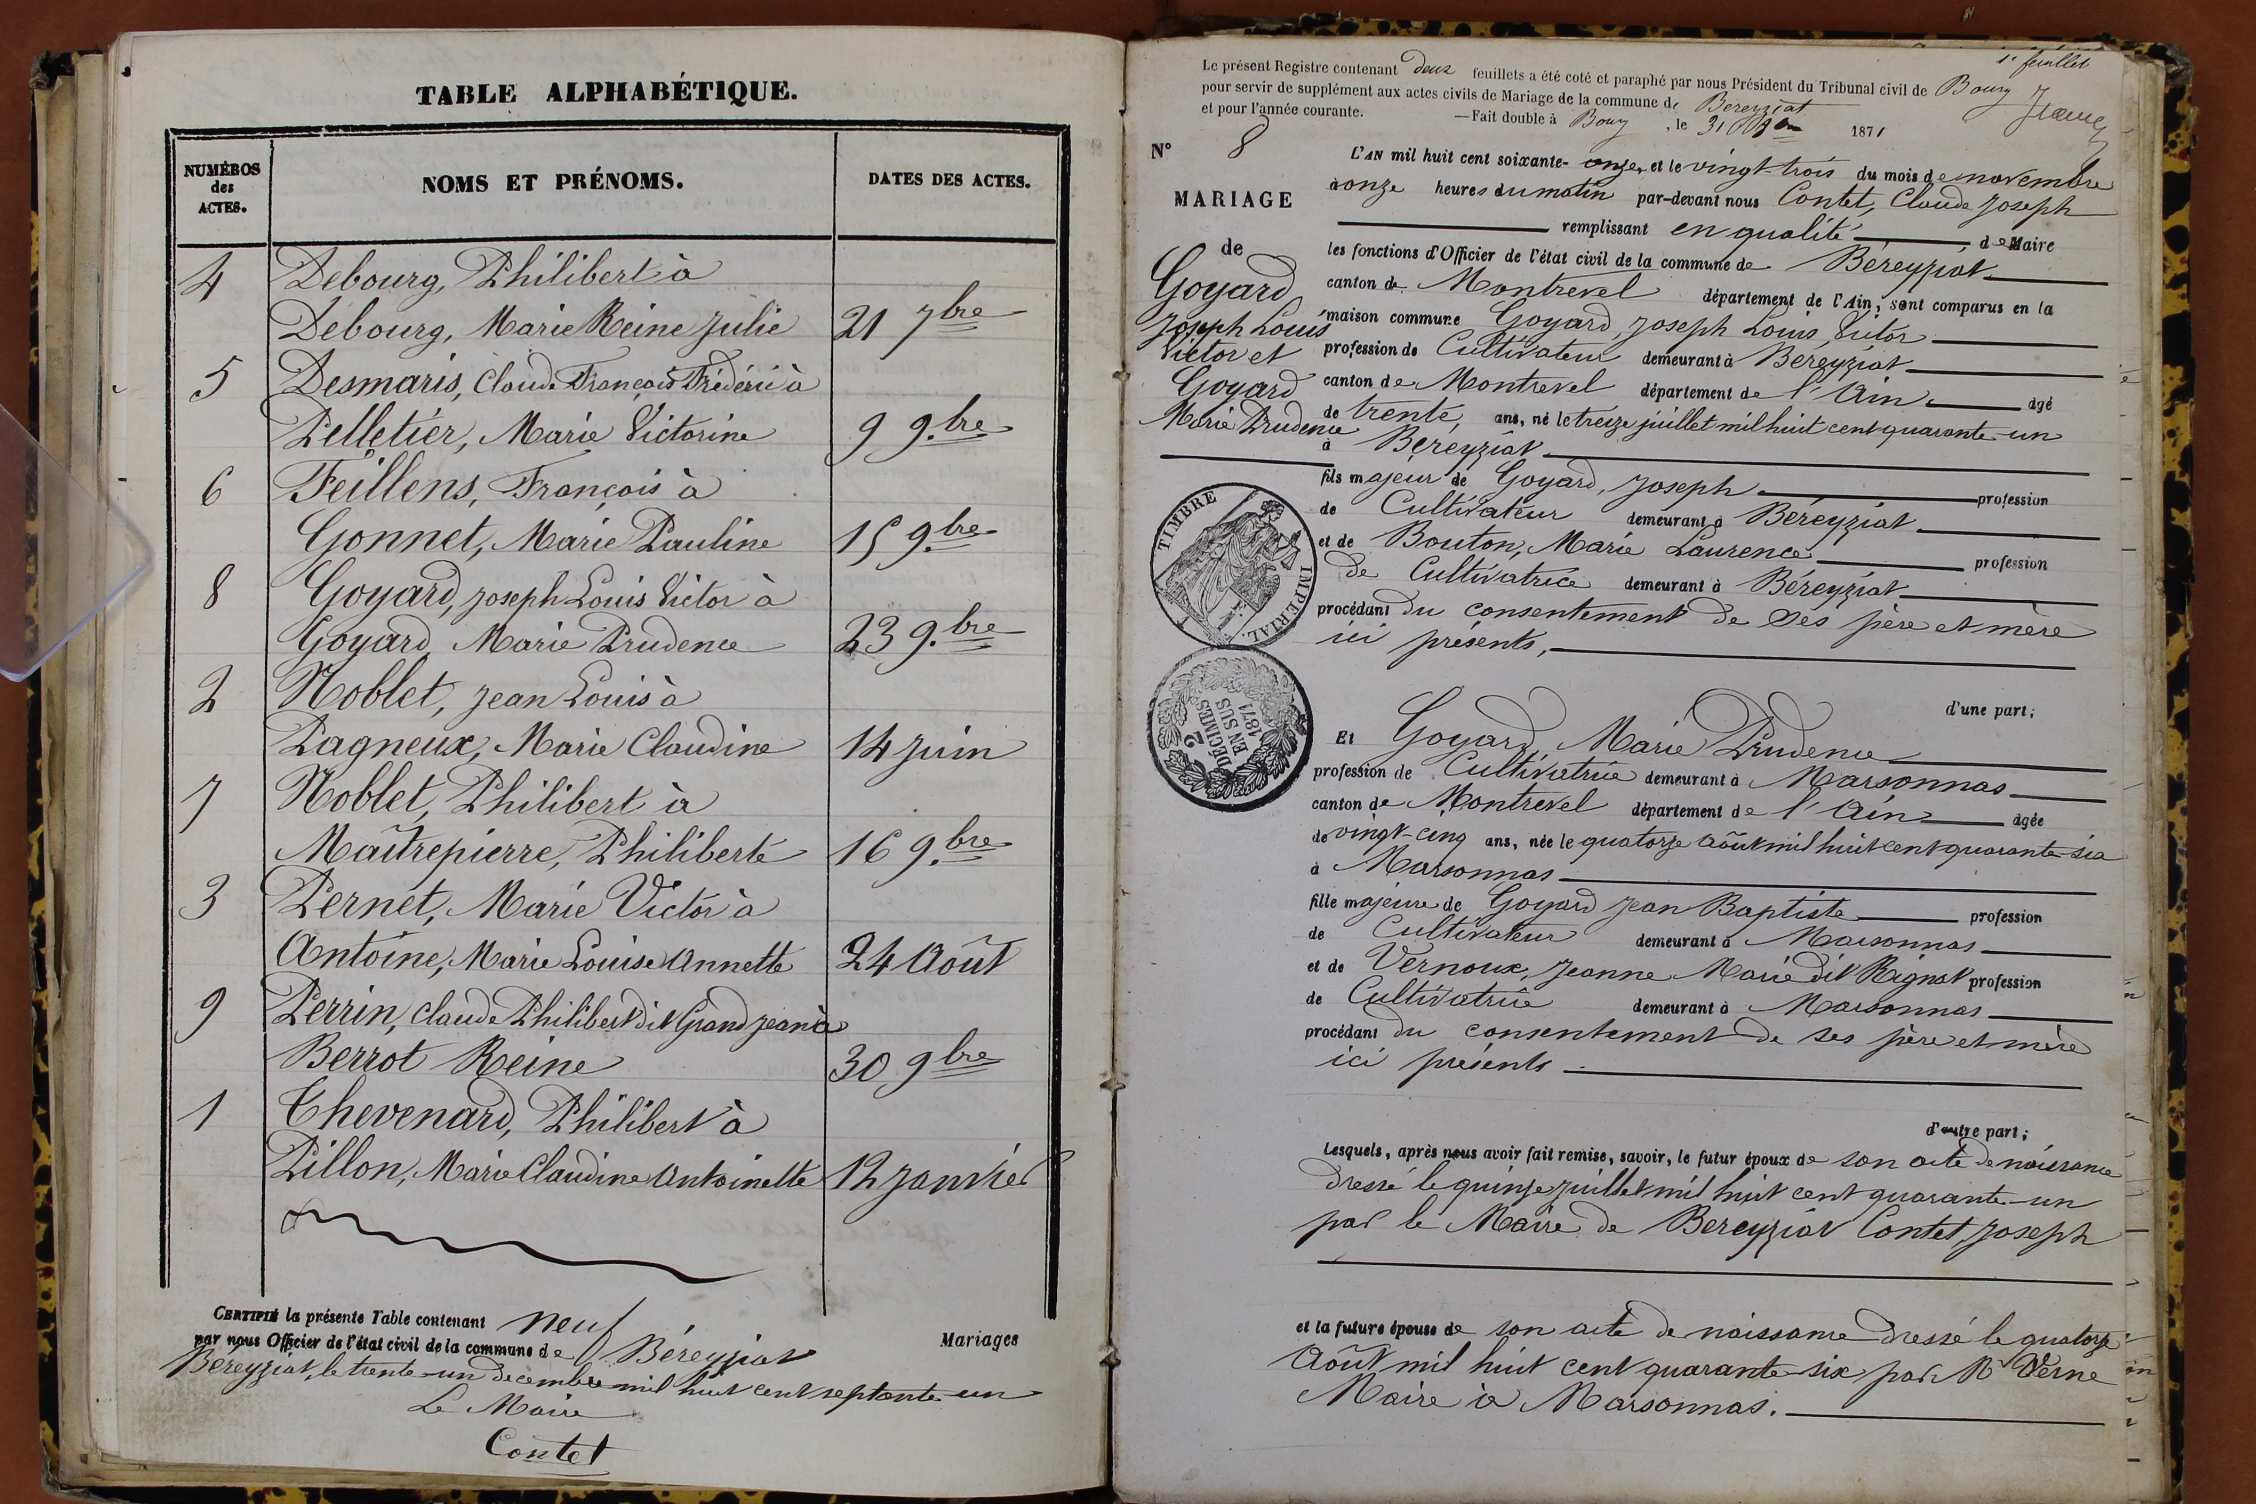 TABLE ALPHABÉTIQUE.
NUMÉROS
des
ACTES.
NOMS ET PRÉNOMS.
DATES DES ACTES.
4 Debourg, Philibert à
Debourg, Marie Reine Julie 21 7bre
5 Desmaris, Claude François Frédéric à
Pelletier, Marie Victorine 9 9.bre
6 Feillens, François à
Gonnet, Marie Pauline 15 9.bre
8 Goyard, Joseph Louis Victor à
Goyard Marie Prudence 23 9.bre
2 Noblet, Jean Louis à
Pagneux, Marie Claudine 14 Juin
7 Noblet, Philibert à
Maîtrepierre, Philiberte 16 9.bre
3 Pernet, Marie Victor à
Antoine, Marie Louise Annette 24 Août
9 Perrin, Claude Philibert dit Grand Jean à
Berrot Reine 30 9bre
1 Chevenard, Philibert à
Pillon, Marie Claudine Antoinette 12 Janvier
CERTIFIÉ la présente Table contenant neuf Mariages
par nous Officier de l'état civil de la commune de Béreyziat
Béreyziat, le trente-un decembre mil huit cent septante-un
Le Maire
Contet
1er feuillet
Le présent Registre contenant deux feuillets a été coté et paraphé par nous Président du Tribunal civil de Bourg
pour servir de supplément aux actes civils de Mariage de la commune de Bereyziat
et pour l'année courante. —Fait double à Bourg, le 31 1871
N° 8
MARIAGE
de
Goyard
Joseph Louis
Victor et
Goyard
Marie Prudence
L'AN mil huit cent soixante-onze, et le vingt-trois du mois de novembre
à onze heures du matin par-devant nous Contet, Claude Joseph
remplissant en qualité de Maire
les fonctions d'Officier de l'état civil de la commune de Béreyziat
canton de Montrevel département de l'Ain, sont comparus en la
maison commune Goyard, Joseph Louis Victor
profession de Cultivateur demeurant à Bereyziat
canton de Montrevel département de l'Ain âgé
de trente, ans, né le treize juillet mil huit cent quarante-un
à Bereyziat
fils majeur de Goyard, Joseph profession
de Cultivateur demeurant à Béreyziat
et de Bouton, Marie Laurence profession
de Cultivatrice demeurant à Béreyziat
procédant du consentement de ses père et mère
ici présents,
TIMBRE IMPERIAL.
2 DÉCIMES
EN SUS
1871
d'une part;
Et Goyard, Marie Prudence
profession de Cultivatrice demeurant à Marsonnas
canton de Montrevel département de l'Ain âgée
de vingt-cinq ans, née le quatorze août mil huit cent quarante-six
à Marsonnas
fille majeure de Goyard Jean Baptiste profession
de Cultivateur demeurant à Marsonnas
et de Vernoux, Jeanne Marie dit Ragnat profession
de Cultivatrice demeurant à Marsonnas
procédant du consentement de ses père et mère
ici présents
d'autre part;
Lesquels, après nous avoir fait remise, savoir, le futur époux de son acte de naissance
dressé le quinze juillet mil huit cent quarante-un
par le Maire de Bereyziat Contet, Joseph
et la future épouse de son acte de naissance dressé le quatorze
Août mil huit cent quarante-six par Mr Verne
Maire à Marsonnas.